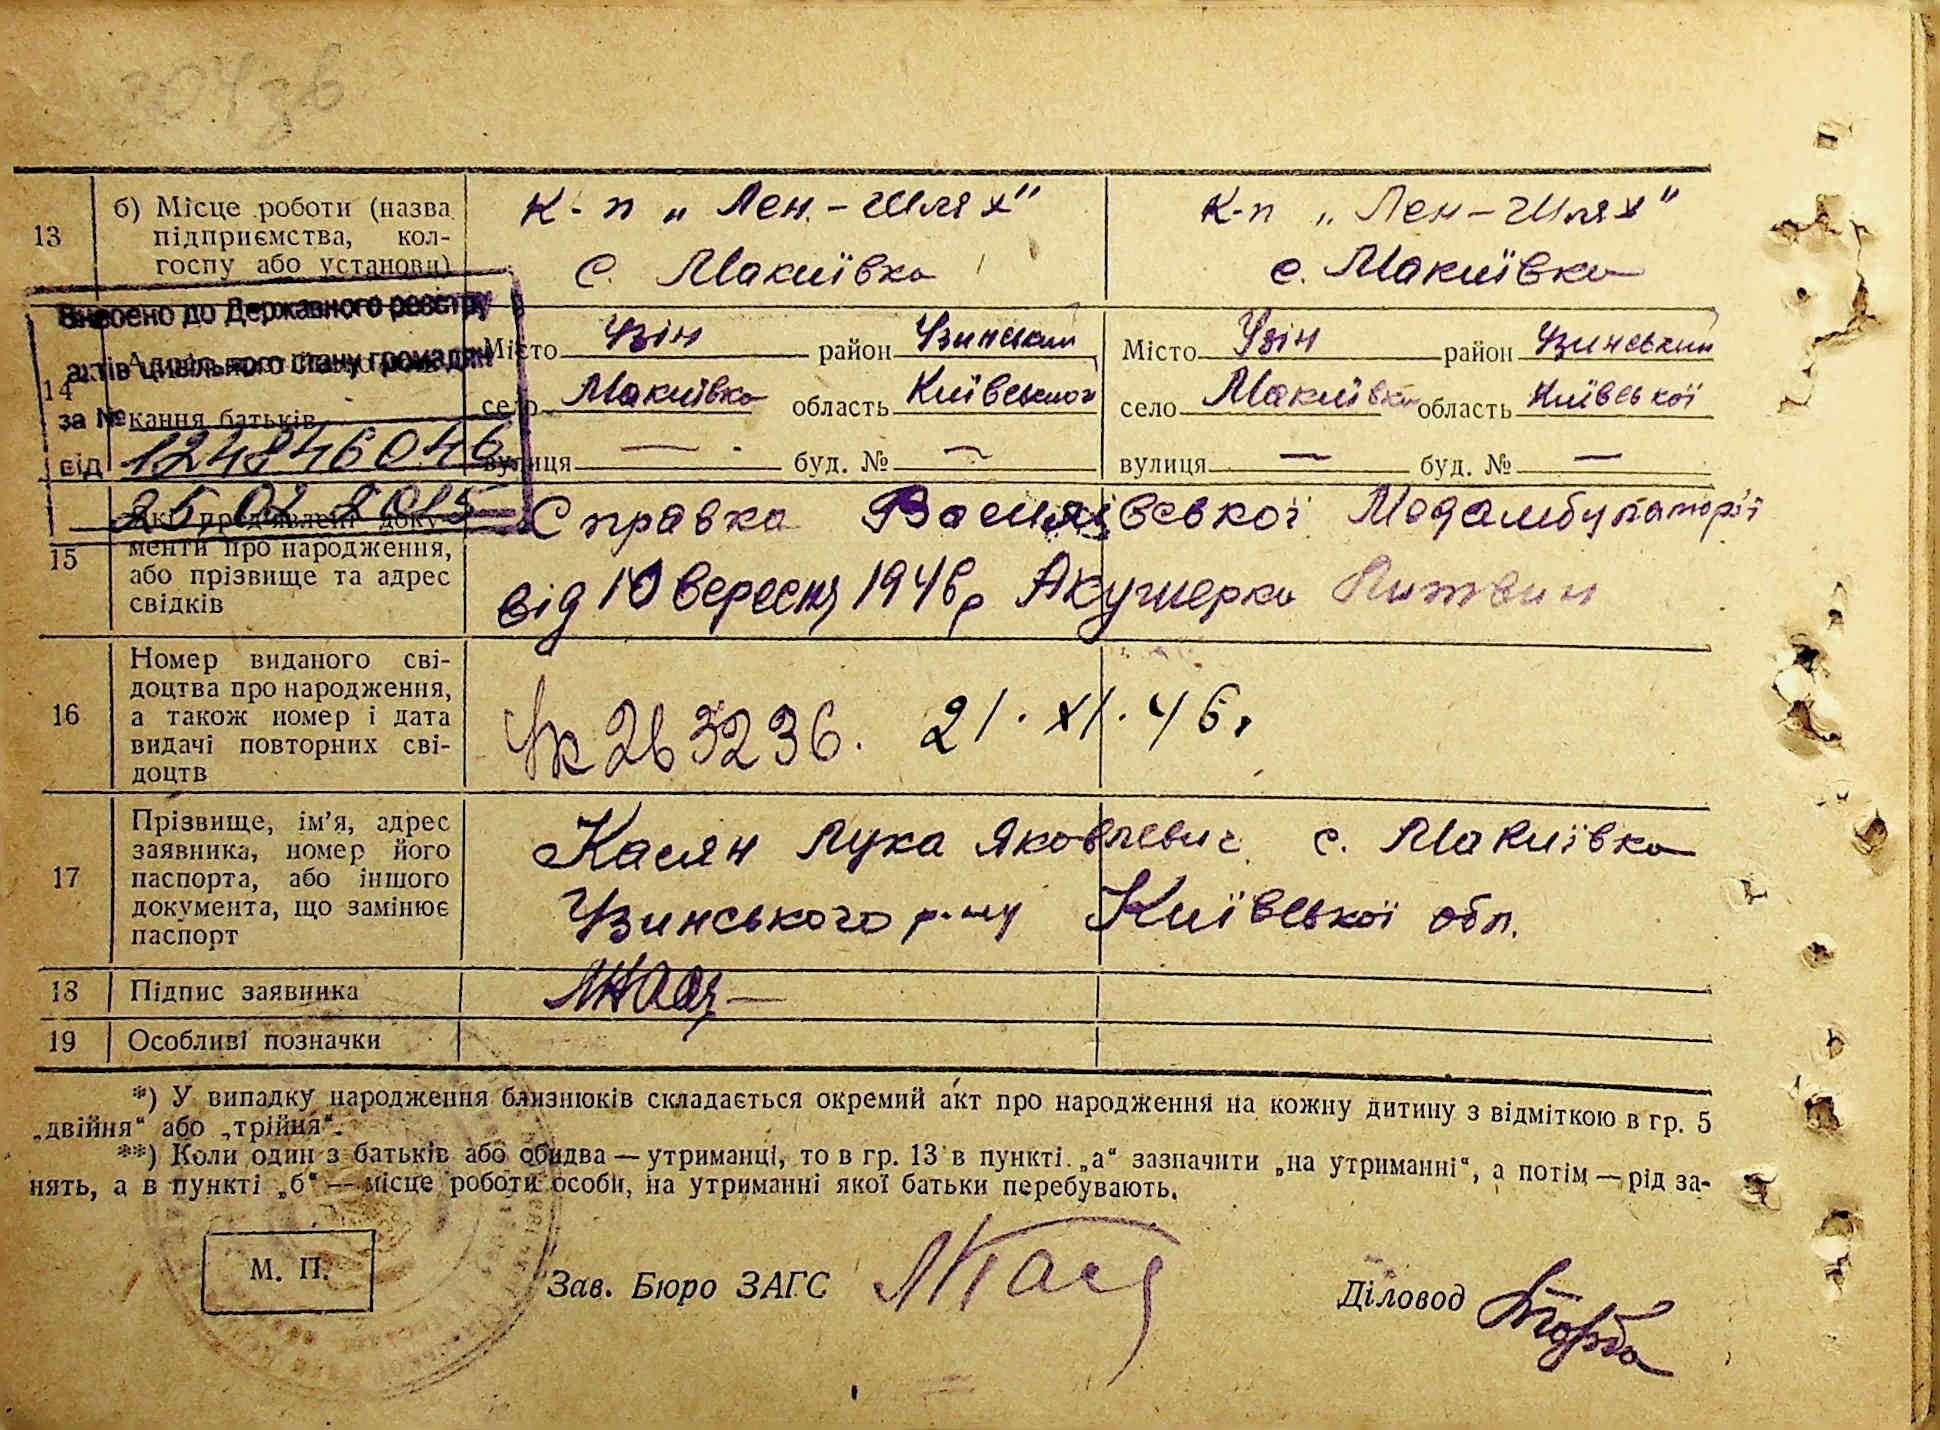 13
б) Місце роботи (назва підприємства, кол-
госпу або установи)
к-п „Лен.-Шлях"
с. Макиївка
к-п „Лен-Шлях"
с. Макиївка
Внесено до Державного реєстру
актів цивільного стану громадян
за №
від 124846046
26 02 2015
14
кання батьків
Місто Узін район Узинський
село Макиївка область Київської
вулиця — буд. № —
Місто Узін район Узинський
село Макиївка область Київської
вулиця — буд. № —
15
Які пред'явлені доку-
менти про народження,
або прізвище та адрес
свідків
Справка Васил івської Медамбулаторії
від 10 вересня 1946р Акушерка Литвин
16
Номер виданого сві-
доцтва про народження,
а також номер і дата
видачі повторних сві-
доцтв
263236. 21. XI. 46г.
17
Прізвище, ім’я, адрес
заявника, номер його
паспорта, або іншого
документа, що замінює
паспорт
Касян Лука Яковлевич с. Макиївка
Узинського р-ну Київської обл.
18
Підпис заявника
19
Особливі позначки
*) У випадку народження близнюків складається окремий акт про народження на кожну дитину з відміткою в гр. 5
„двійня“ або „трійня“.
**) Коли один з батьків або обидва — утриманці, то в гр. 13 в пункті „а“ зазначити „на утриманні“, а потім — рід за-
нять, а в пункті „б“ — місце роботи особи, на утриманні якої батьки перебувають.
М. П.
Зав. Бюро ЗАГС
Діловод